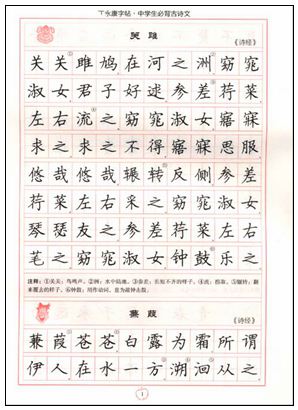 丁永康字帖·中学生必背古诗文
关雎
《诗经》
关关雎鸠在河之洲窈窕
淑女君子好逑参差荇菜
左右流之窈窕淑女寤寐
求之求之不得寤寐思服
悠哉悠哉辗转反侧参差
荇菜左右采之窈窕淑女
琴瑟友之参差荇菜左右
芼之窈窕淑女钟鼓乐之
注释：①关关：鸟鸣声。②洲：水中陆地。③参差：长短不齐的样子。④流：捞取。⑤辗转：翻
来覆去的样子。⑥钟鼓：用作动词，意为敲钟击鼓。
蒹葭
《诗经》
蒹葭苍苍白露为霜所谓
伊人在水一方溯洄从之
1